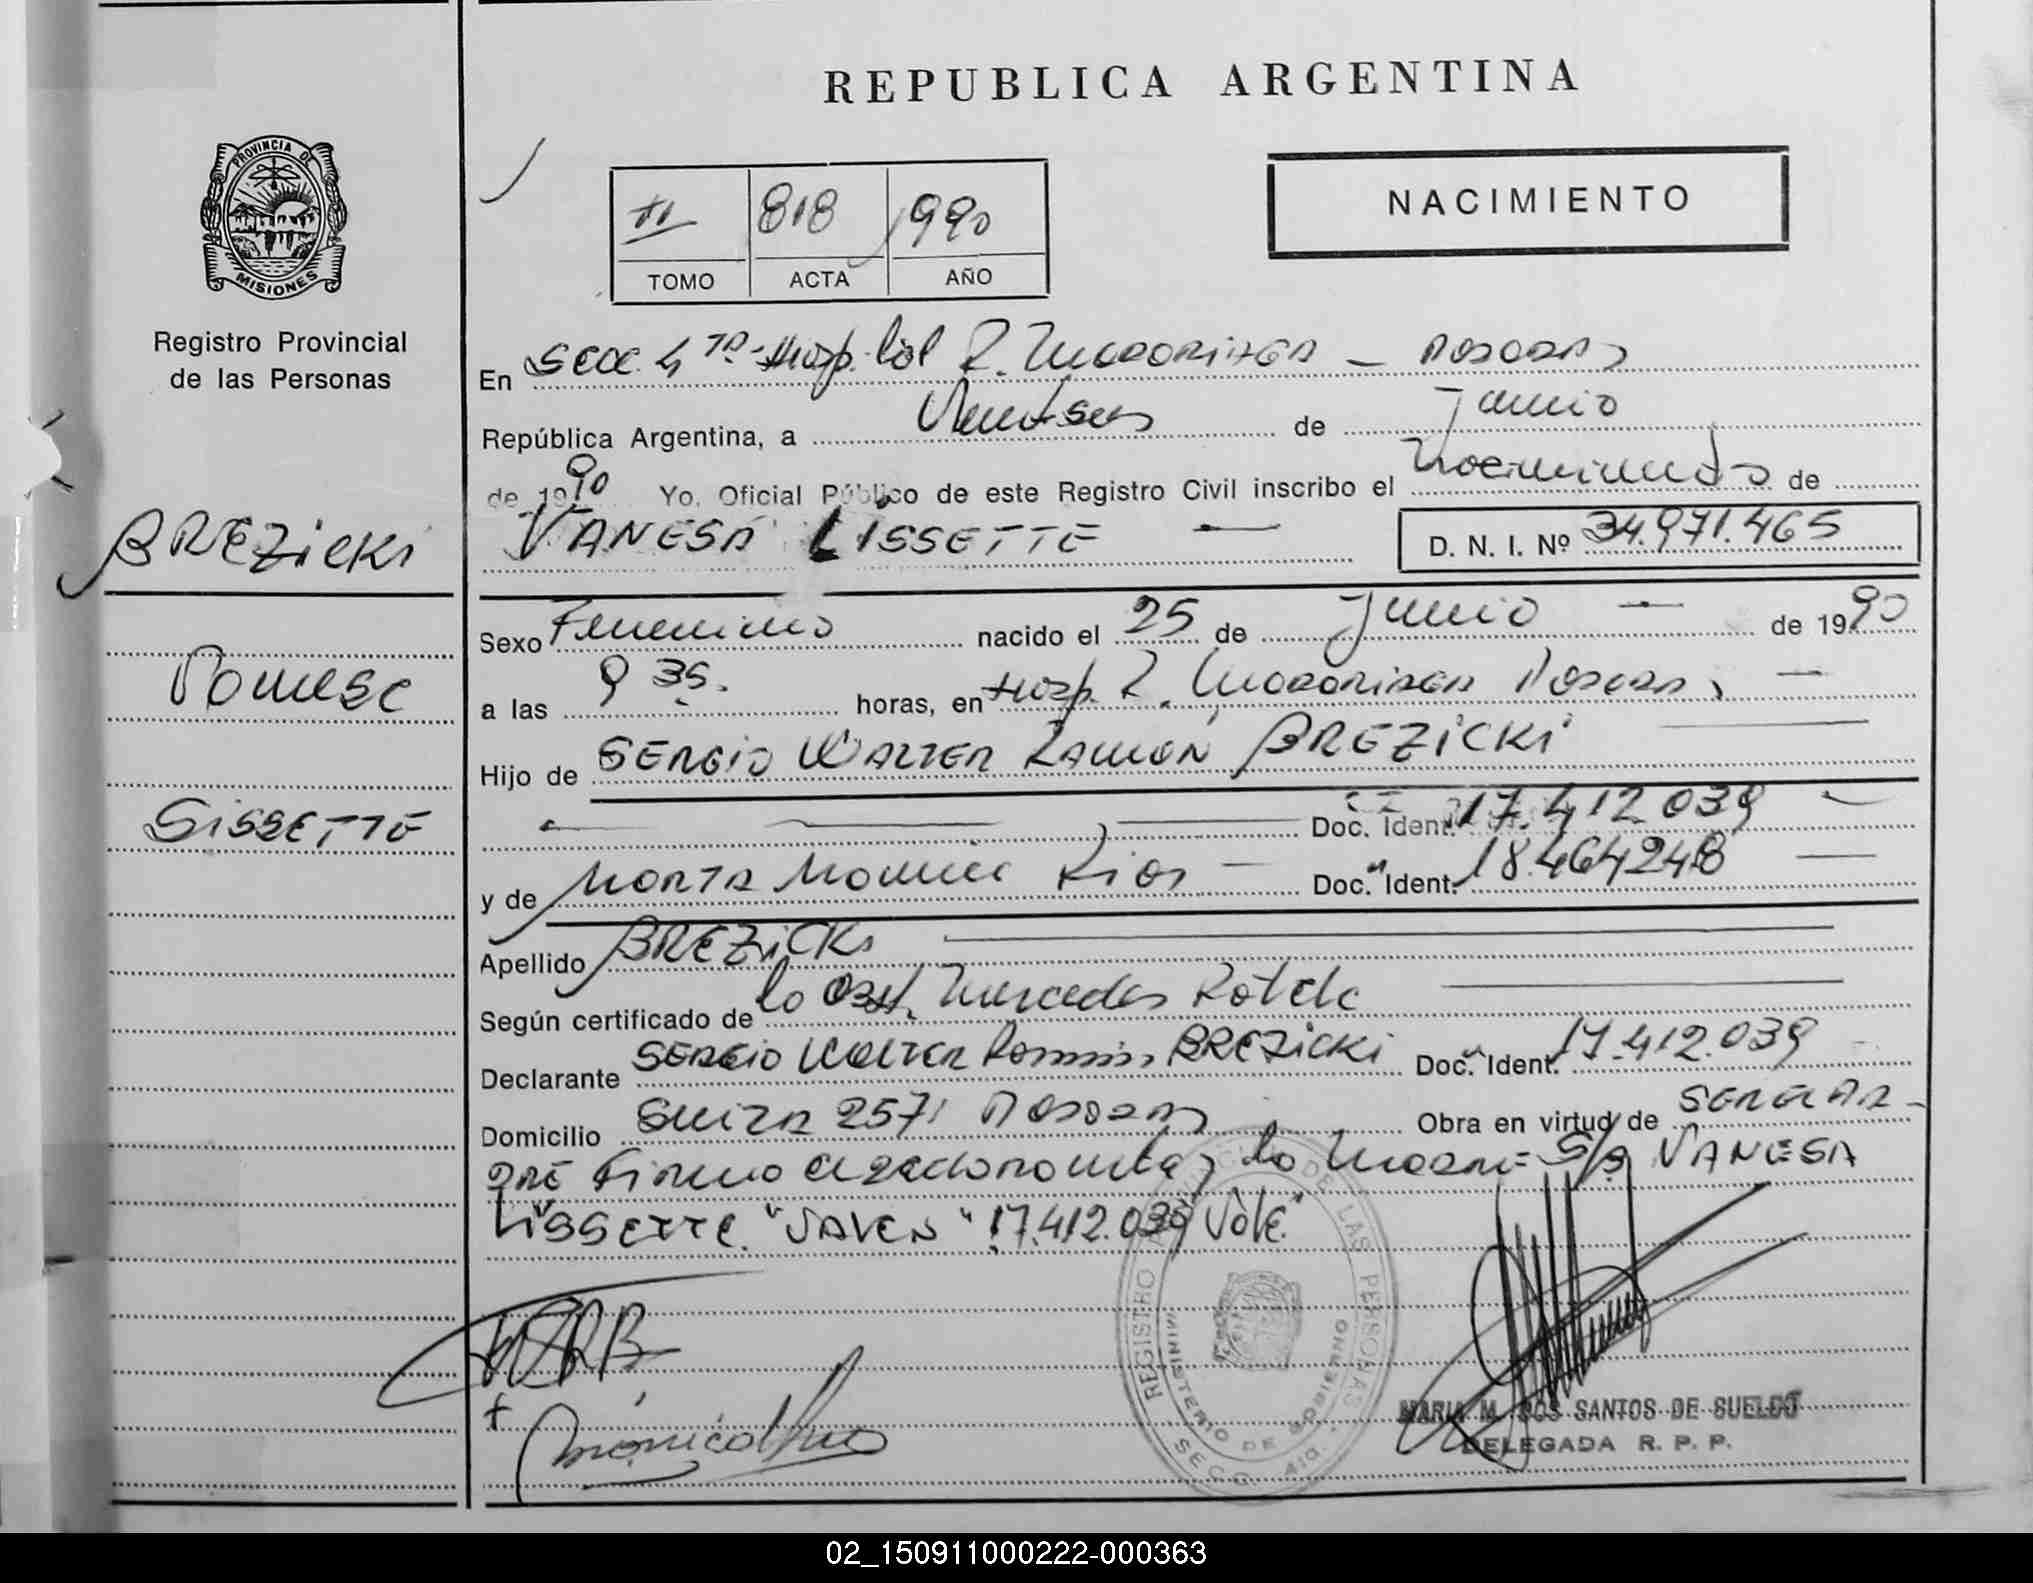 REPUBLICA ARGENTINA
PROVINCIA DE MISIONES
Registro Provincial
de las Personas
II 818 1990
TOMO ACTA AÑO
NACIMIENTO
En Secc. 4ta Hospital R. Madariaga - Posadas
República Argentina, a de Junio
de 1990 Yo, Oficial Público de este Registro Civil inscribo el Nacimiento de
VANESA LISSETTE D. N. I. Nº 34.971.465
BREZICKI
Sexo Femenino nacido el 25 de Junio de 1990
Vanesa
a las 9 35. horas, en Hosp. R. Madariaga Posadas
Hijo de SERGIO WALTER RAMON BREZICKI
LISSETTE
Doc. Ident. 17.412.039
y de Ríos Doc. Ident. 18.464248
Apellido BREZICKI
Según certificado de la Obst. Mercedes Rotela
Declarante SERGIO WALTER Ramón BREZICKI Doc. Ident. 17.412.039
Domicilio Suiza 2571 Posadas Obra en virtud de
que Firma la Madre S/R VANESA
LISSETTE. "17.412.039 Vale"
REGISTRO PROVINCIAL DE LAS PERSONAS
MINISTERIO DE GOBIERNO
SECC. 4ta.
MARIA M. DOS SANTOS DE SUELDO
DELEGADA R. P. P.
02_150911000222-000363